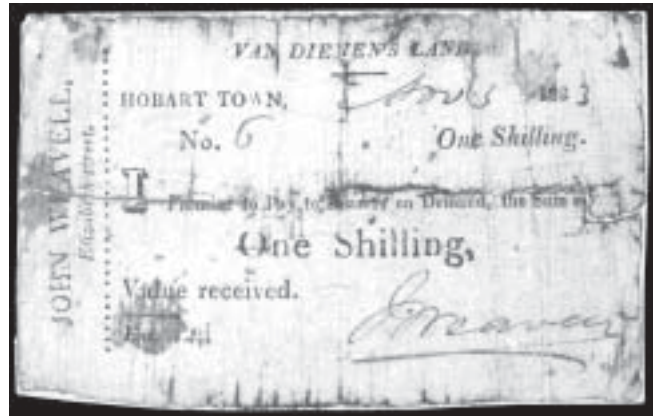 JOHN WEAVELL,
Elizabeth-street,
VAN DIEMEN'S LAND.
HOBART TOWN, 1823
No. 6 One Shilling.
I Promise to Pay to Bearer on Demand, the Sum of
One Shilling,
Value received.
J. Weavell